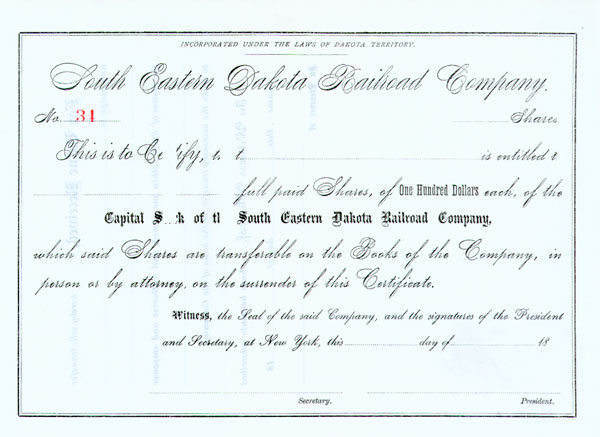 INCORPORATED UNDER THE LAWS OF DAKOTA TERRITORY.
South Eastern Dakota Railroad Company.
No. 31 Shares
This is to is entitled
full paid Shares, of One Hundred Dollars each, of the
Capital of South Eastern Dakota Railroad Company,
which said Shares are transferable on the Books of the Company, in
person or by attorney, on the surrender of this Certificate.
Witness, the Seal of the said Company, and the signatures of the President
and Secretary, at New York, this day of 18
Secretary. President.